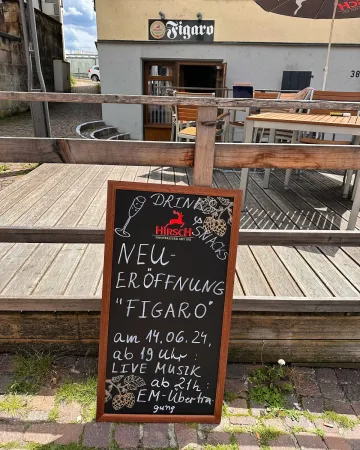 Figaro
HIRSCH
38
DRINKS
& SNACKS
HIRSCH
NEU-
ERÖFFNUNG
"FIGARO"
am 14.06.24,
ab 19 Uhr:
LIVE MUSIK
ab 21h:
EM-Übertra-
gung